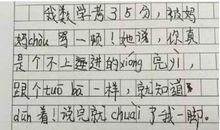 我数学考35分，被妈
妈chǒu骂一顿！她说，你真
是个不上进的xiōng完yì，
跟个tuō bǎ一样，就知道
dūn着！说完就chuài了我一脚。